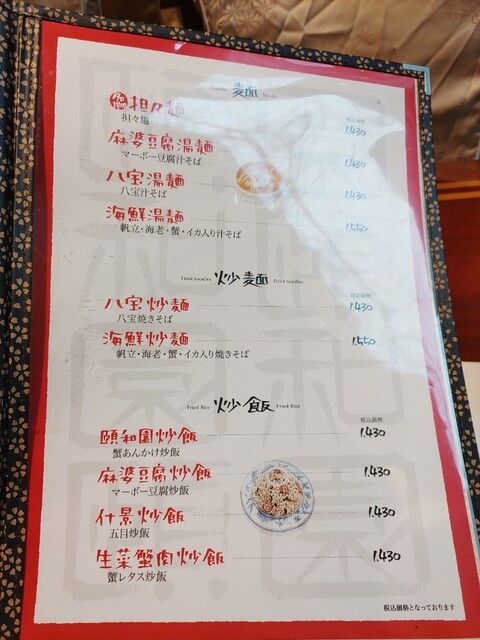 麺
名物 担々麺
担々麺
1,430
麻婆豆腐湯麺
マーボー豆腐汁そば
1,430
八宝湯麺
八宝汁そば
1,430
海鮮湯麺
帆立・海老・蟹・イカ入り汁そば
1,550
Fried noodles 炒麺 Fried noodles
税込価格
八宝炒麺
八宝焼きそば
1,430
海鮮炒麺
帆立・海老・蟹・イカ入り焼きそば
1,550
Fried Rice 炒飯 Fried Rice
税込価格
頤和園炒飯
蟹あんかけ炒飯
1,430
麻婆豆腐炒飯
マーボー豆腐炒飯
1,430
什景炒飯
五目炒飯
1,430
生菜蟹肉炒飯
蟹レタス炒飯
1,430
税込価格となっております